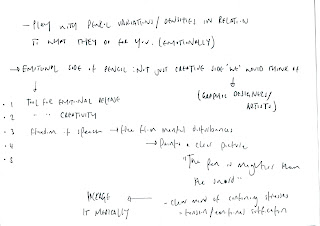 - PLAY WITH PENCIL VARIATIONS/DENSITIES IN RELATION
TO WHAT THEY DO FOR YOU. (EMOTIONALLY)
→ EMOTIONAL SIDE OF PENCIL: NOT JUST CREATIVE SIDE 'WE' WOULD THINK OF
(GRAPHIC DESIGNERS/
ARTISTS)
• 1 TOOL FOR EMOTIONAL RELEASE
• 2 " " CREATIVITY
• 3 Freedom of speech → free from mental disturbances
• 4 → Paints a clear picture
• 5 "The pen is mightier than
the sword"
PACKAGE ← - clear mind of confining stresses
IT MEDICALLY - tension/emotional